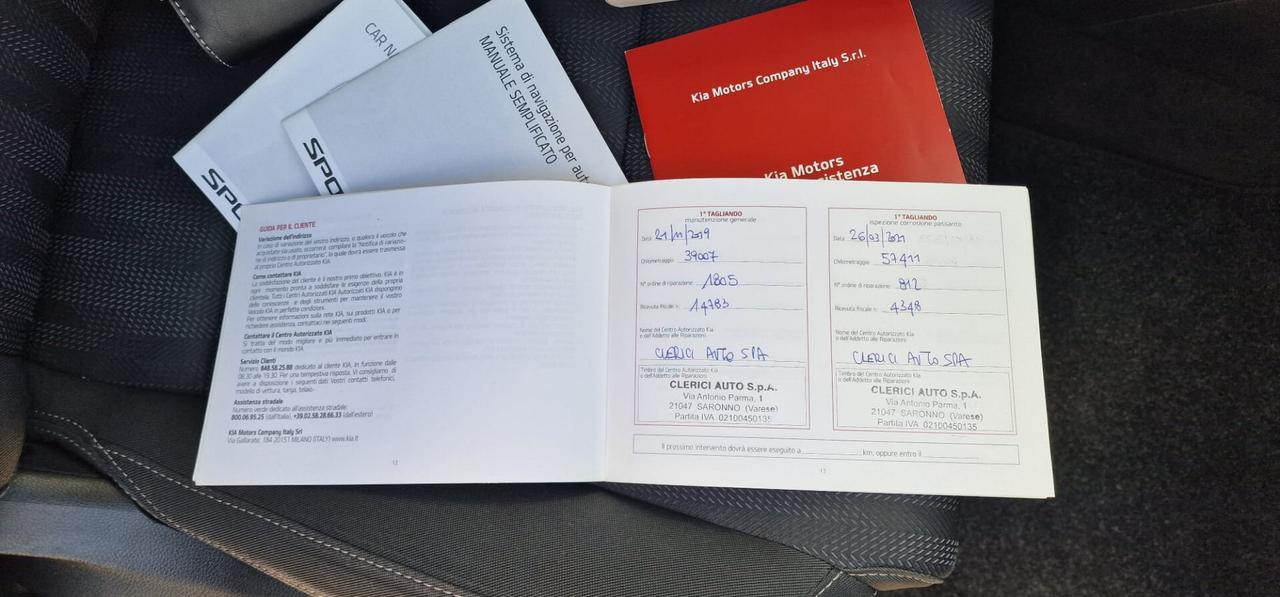 CAR N
SPO
Sistema di navigazione per aut
MANUALE SEMPLIFICATO
SPO
Kia Motors Company Italy S.r.l.
Kia Motors
sistenza
GUIDA PER IL CLIENTE
Variazione dell'indirizzo
In caso di variazione del vostro indirizzo, o qualora il veicolo che
acquistate sia usato, occorrerà compilare la "Notifica di variazio-
ne di indirizzo o di proprietario", la quale dovrà essere trasmessa
al proprio Centro Autorizzato KIA.
Come contattare KIA
La soddisfazione del cliente è il nostro primo obiettivo. KIA è in
ogni momento pronta a soddisfare le esigenze della propria
clientela. Tutti i Centri Autorizzati KIA Autorizzati KIA dispongono
delle conoscenze e degli strumenti per mantenere il vostro
Veicolo KIA in perfette condizioni.
Per ottenere informazioni sulla rete KIA, sui prodotti KIA o per
richiedere assistenza, contattaci nei seguenti modi:
Contattare il Centro Autorizzato KIA
Si tratta del modo migliore e più immediato per entrare in
contatto con il mondo KIA.
Servizio Clienti
Numero 848.58.25.88 dedicato al cliente KIA, in funzione dalle
08.30 alle 19.30. Per una tempestiva risposta, Vi consigliamo di
avere a disposizione i seguenti dati: Vostri contatti telefonici,
modello di vettura, targa, telaio.
Assistenza stradale
Numero verde dedicato all'assistenza stradale:
800.06.95.25 (dall'Italia), +39.02.58.28.66.33 (dall'estero)
KIA Motors Company Italy Srl
Via Gallarate, 184 20151 MILANO (ITALY) www.kia.it
12
1° TAGLIANDO
manutenzione generale
Data 21/11/2019
Chilometraggio 39007
N° ordine di riparazione 1805
Ricevuta fiscale n. 14783
Nome del Centro Autorizzato Kia
o dell'Addetto alle Riparazioni
CLERICI AUTO SPA
Timbro del Centro Autorizzato Kia
o dell'Addetto alle Riparazioni
CLERICI AUTO S.p.A.
Via Antonio Parma, 1
21047 SARONNO (Varese)
Partita IVA 02100450135
1° TAGLIANDO
ispezione corrosione passante
Data 26/03/2021
Chilometraggio 57411
N° ordine di riparazione 912
Ricevuta fiscale n. 4348
Nome del Centro Autorizzato Kia
o dell'Addetto alle Riparazioni
CLERICI AUTO SPA
Timbro del Centro Autorizzato Kia
o dell'Addetto alle Riparazioni
CLERICI AUTO S.p.A.
Via Antonio Parma, 1
21047 SARONNO (Varese)
Partita IVA 02100450135
Il prossimo intervento dovrà essere eseguito a km, oppure entro il
13